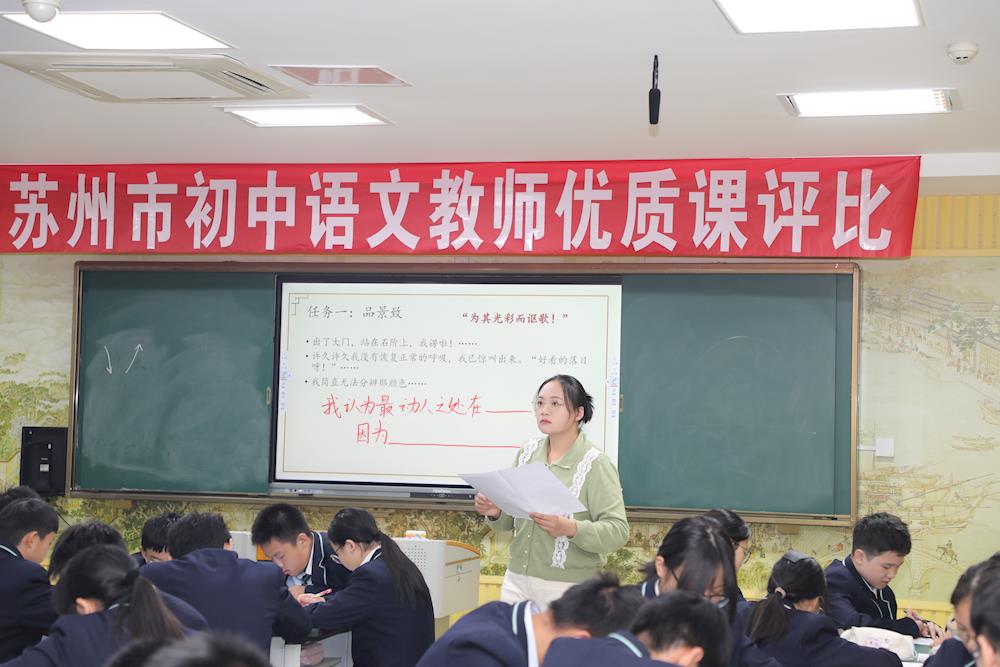 苏州市初中语文教师优质课评比
任务一：品景致
“为其光彩而讴歌！”
• 出了大门，站在石阶上，我愣啦！……
• 许久许久我没有恢复正常的呼吸，我已惊叫出来。“好看的落日
呀！”……
• 我简直无法分辨那颜色……
我认为最动人之处在
因为